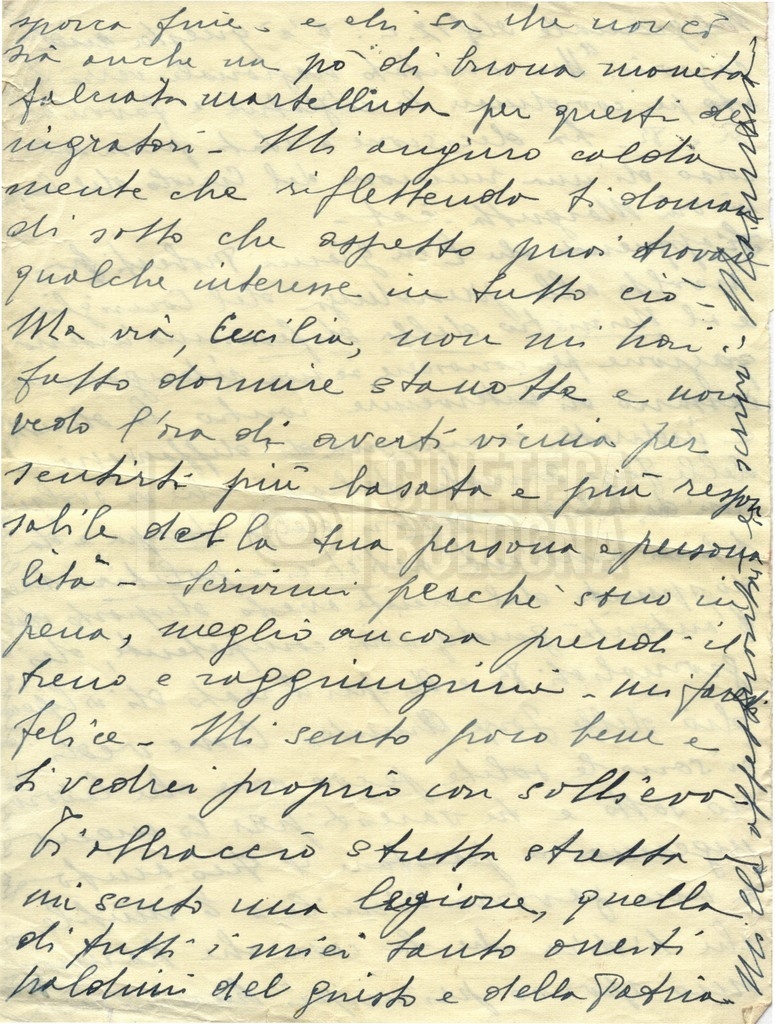 sporca fine - e chi sa che non ci
sia anche un pò di buona moneta
falciata martellata per questi de
nigratori - Mi auguro calda
mente che riflettendo ti doman
di sotto che aspetto puoi trovare
qualche interesse in tutto ciò -
Ma via, Cecilia, non mi hai
fatto dormire stanotte e non
vedo l'ora di averti vicina per
sentirti più basata e più respon
sabile della tua persona e persona
lità - Scrivimi perchè sono in
pena, meglio ancora prendi il
treno e raggiungimi - mi farai
felice - Mi sento poco bene e
ti vedrei proprio con sollievo
Ti abbraccio stretta stretta -
mi sento una legione, quella
di tutti i miei tanto onesti
paladini del giusto e della Patria
Mille affettuosità e scrivi - Mammina
CINETECA
BOLOGNA